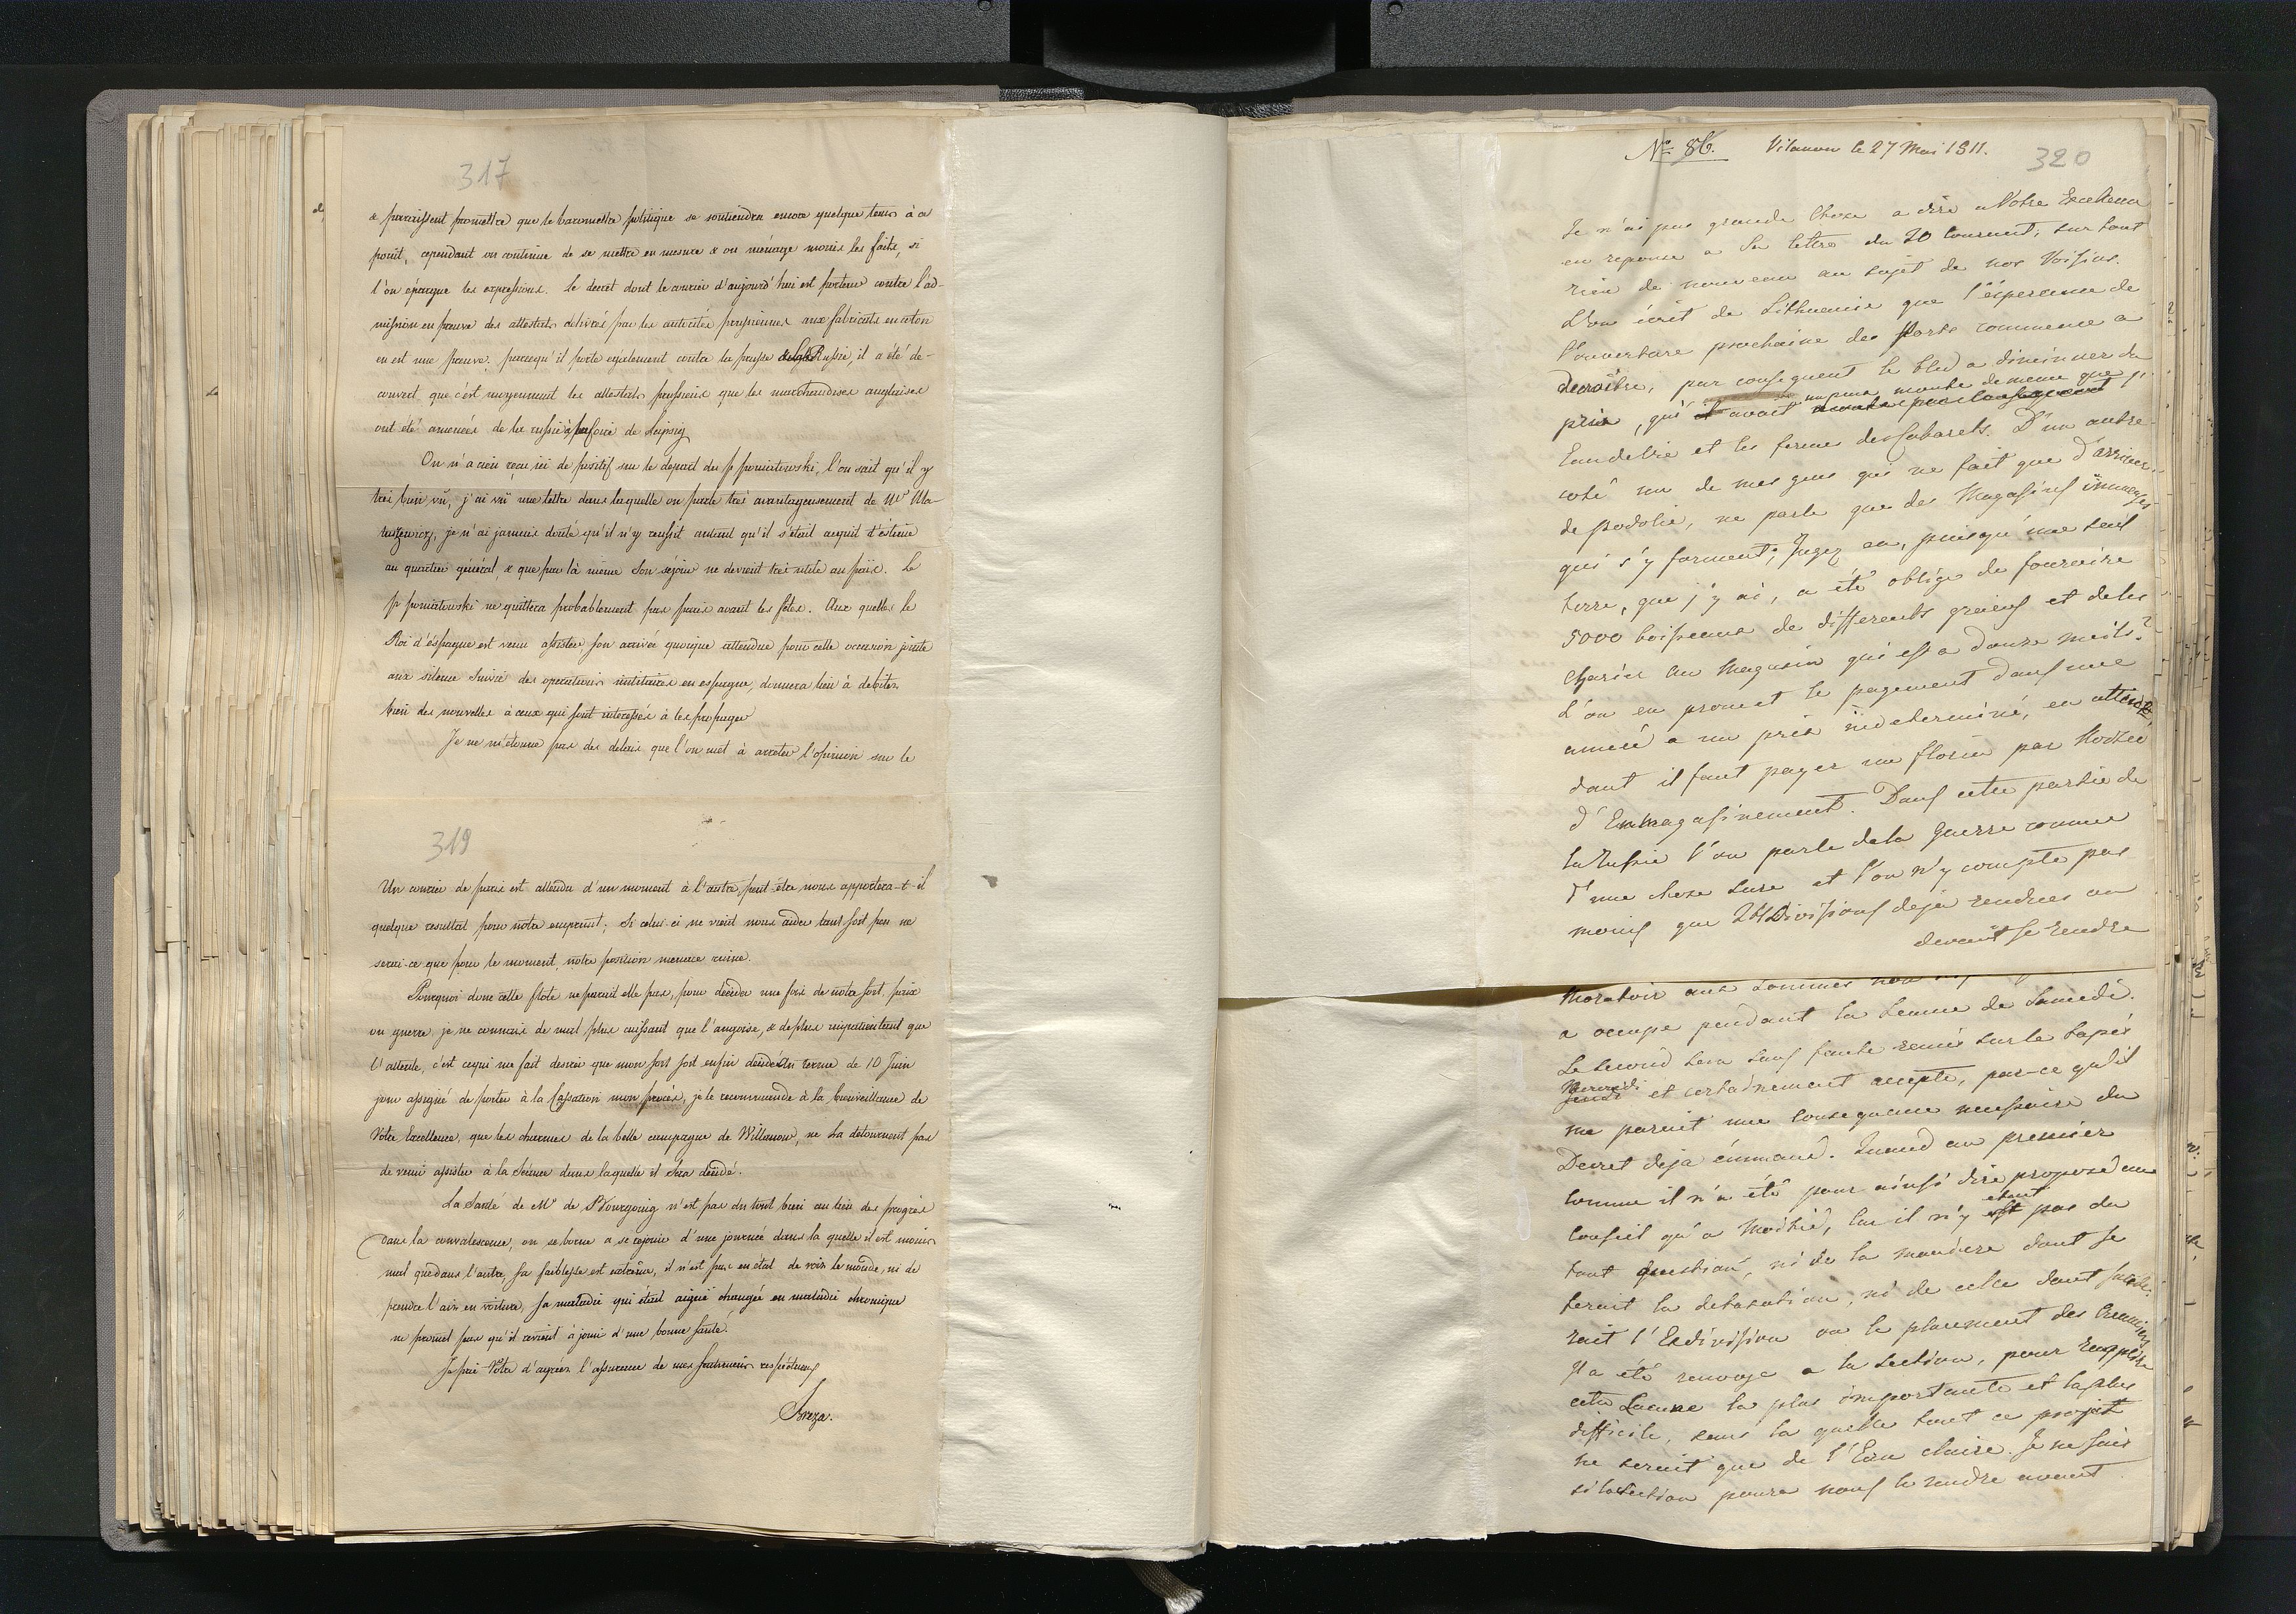 317
& paraissent promettre que le barometre politique se soutiendra encore quelque tems à ce
point, cependant on continue de se mettre en mesure & on ménage moins les faits, si
l'on épargne les expressions. Le decret dont le courier d'aujourd'hui est porteur contre l'ad-
mission en preuve des attestats délivrés par les autorités prussiennes aux fabricats en coton
en est une preuve, puisqu'il porte egalement contre la prusse & la Russie, il a été dé-
couvert, que c'est moyennant les attestats prussiens que les marchandises anglaises
ont été amenées de la russie à la foire de Leipsig
On n'a rien reçu ici de positif sur le depart du p poniatowski, l'on sait qu'il y
très bien vû, j'ai vû une lettre dans laquelle on parle très avantageusement de Mr Ma-
tuszewicz, je n'ai jamais douté qu'il n'y reussit autant qu'il s'étoit acquit d'éstime
au quartier général, & que par là même son séjour ne devient très utile au païs. Le
p poniatowski ne quittera probablement pas paris avant les fêtes. Aux quelles le
Roi d'éspagne est venu assister son arrivée quoique attendue pour cette occasion jointe
aux silence suivie des operations militaires en espagne, donnera lieu à debiter
bien des nouvelles à ceux qui sont interessés à les propager
Je ne m'étonne pas des delais que l'on met à arreter l'opinion sur le
319
Un courier de paris est attendu d'un moment à l'autre, peut-être nous apportera-t-il
quelque resultat pour notre emprunt; Si celui-ci ne vient nous aider tant soit peu ne
serai-ce que pour le moment, notre position menace ruine.
Pourquoi donc cette flote ne parait elle pas, pour décider une fois de notre sort, paix
ou guerre je ne connais de mal plus cuissant que l'angoisse, & de plus impatientant que
l'attente, c'est ce qui me fait desirer que mon sort soit enfin décidé au terme de 10 Juin
jour assigné de porter à la Cassation mon procès, je le recommande à la bienveillance de
Votre Excellence, que les charmes de la belle campagne de Willanow, ne La detournent pas
de venir assister à la Séance dans laquelle il sera décidé.
La Santé de Mr de Bourgoing n'est pas du tout bien au lieu des progrès
dans la convalescence, on se borne a se rejouir d'une journée dans la quelle il est moins
mal que dans l'autre, sa faiblesse est extrême, il n'est pas en état de voir le monde, ni de
prendre l'air en voiture, sa maladie qui étoit aigüe changée en maladie chronique
ne promet pas qu'il revient à jouir d'une bonne santé.
Je prie Votre d'agréer l'assurance de mes sentimens respectueux
Breza.
No 86. Vilanow le 27 Mai 1811. 320
Je n'ai pas grande chose a dire a Votre Excellence
en reponse a Sa lettre du 20 Courrent; sur tout
rien de nouveau au sujet de nos Voisins.
L'on écrit de Lithuanie que l'ésperance de
l'ouverture prochaine des Ports commence a
decroître, par consequent le bled a diminuer du
prix, qui avait un peu monté de meme que
l'eau de Vie et les ferme des Cabarets. D'un autre
coté un de mes gens qui ne fait que d'arriver
de podolie, ne parle que des Magasins immenses
qui s'y forment; Jugez en, puisqu'une seul
terre, que j'y ai, a été obligé de fournire
5000 boisseaux de differents grains et de les
charier au Magasin qui est a douze meils?
L'on en promet le payement dans une
année a un prix indeterminé, en atten-
dant il faut payer un florin par Korzec
d'Emmagasinement. Dans cette partie de
la Russie l'on parle de la Guerre comme
d'une chose sure et l'on n'y compte pas
moins que 24 Divisions deja rendues ou
devant se rendre
Moratoir aux sommes non
a occupe pendant la Seance de Samedi.
Le second sera sans faute remis sur le tapis
Mercredi et certainement accepte, par-ce qu'il
me parait une consequence necessaire du
Decret deja émmané. Quand au premier
comme il n'a été pour ainsi dire proposé au
Conseil qu'a Moitié, car il n'y etant pas du
tout question, ni de la maniere dont se
ferait la detaxation, ni de celle dont se
rait l'Exdivision ou le placement des Creanciers
Il a été renvoyé a la Section, pour remplire
cette Lacune la plus importante et la plus
difficile, sans la quelle tout ce projet
ne serait que de l'Eau claire. Je ne sais
si la Section poura nous le rendre avant